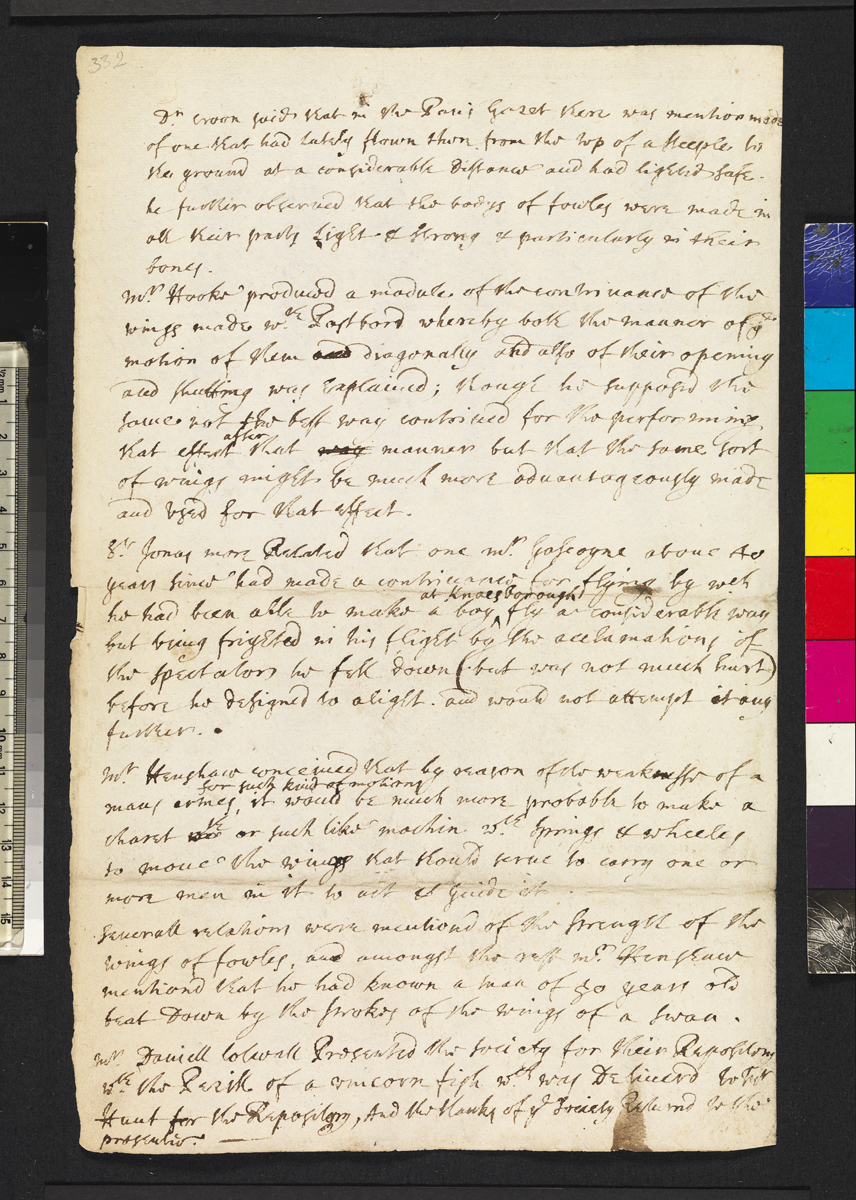 332
Dr. Croon said that in the Paris Gazet there was mention made
of one that had lately flown there from the top of a steeple to
the ground at a considerable Distance and had lighted safe.
he further observed that the bodys of fowles were made in
all their parts Light & strong & particularly in their
bones.
Mr. Hooke produced a module of the contrivance of the
wings made wth Pastbord whereby both the manner of ye
motion of them and diagonally and also of their opening
and shutting was Explained; though he supposed the
same not the best way contrived for the performing
that effect after that way manner but that the same sort
of wings might be much more advantageously made
and used for that effect.
Sr. Jonas more Related that one Mr. Gascoyne about 40
years since had made a contrivance for flying by wch
he had been able to make a boy at Knaesborough fly a considerable way
but being frighted in his flight by the acclamations of
the spectators he fell down (but was not much hurt)
before he designed to alight. and would not attempt it any
further.
Mr. Henshaw conceived that by reason of the weaknesse of a
mans armes for such kind of motions, it would be much more probable to make a
charet or such like machin wth Springs & wheeles
to move the wings that should serve to carry one or
more men in it to act & Guide it.
Severall relations were mentiond of the strength of the
wings of fowles, and amongst the rest Mr. Henshaw
mentiond that he had known a man of 50 years old
beat Down by the strokes of the wings of a swan.
Mr. Daniell Colwall Presented the society for their Repository
wth the Pezill of a unicorn fish wch was Deliverd to Mr.
Hunt for the Repository, And the thanks of ye Society Returnd to the
presenter.